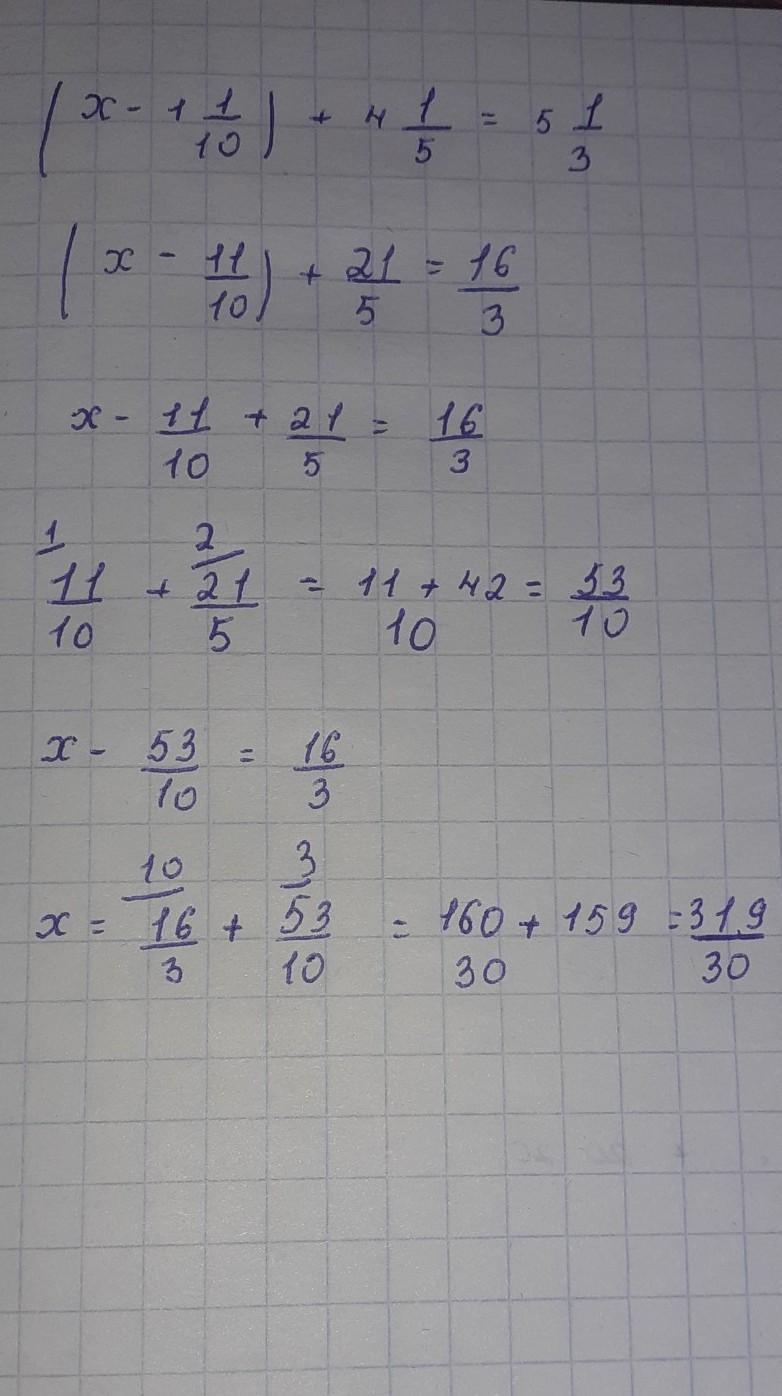 (x - 1 1/10) + 4 1/5 = 5 1/3
(x - 11/10) + 21/5 = 16/3
x - 11/10 + 21/5 = 16/3
1 2
11/10 + 21/5 = 11 + 42/10 = 53/10
x - 53/10 = 16/3
10 3
x = 16/3 + 53/10 = 160 + 159/30 = 319/30